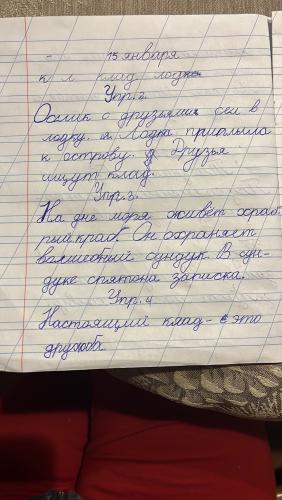 15 января
к л клад лодка
Упр.2.
Ослик с друзьями сел в
лодку. Лодка приплыла
к острову. Друзья
ищут клад.
Упр.3.
На дне моря живёт храб-
рый краб. Он охраняет
волшебний сундук. В сун-
дуке спятона записка.
Упр.4
Настоящий клад - это
дружба.